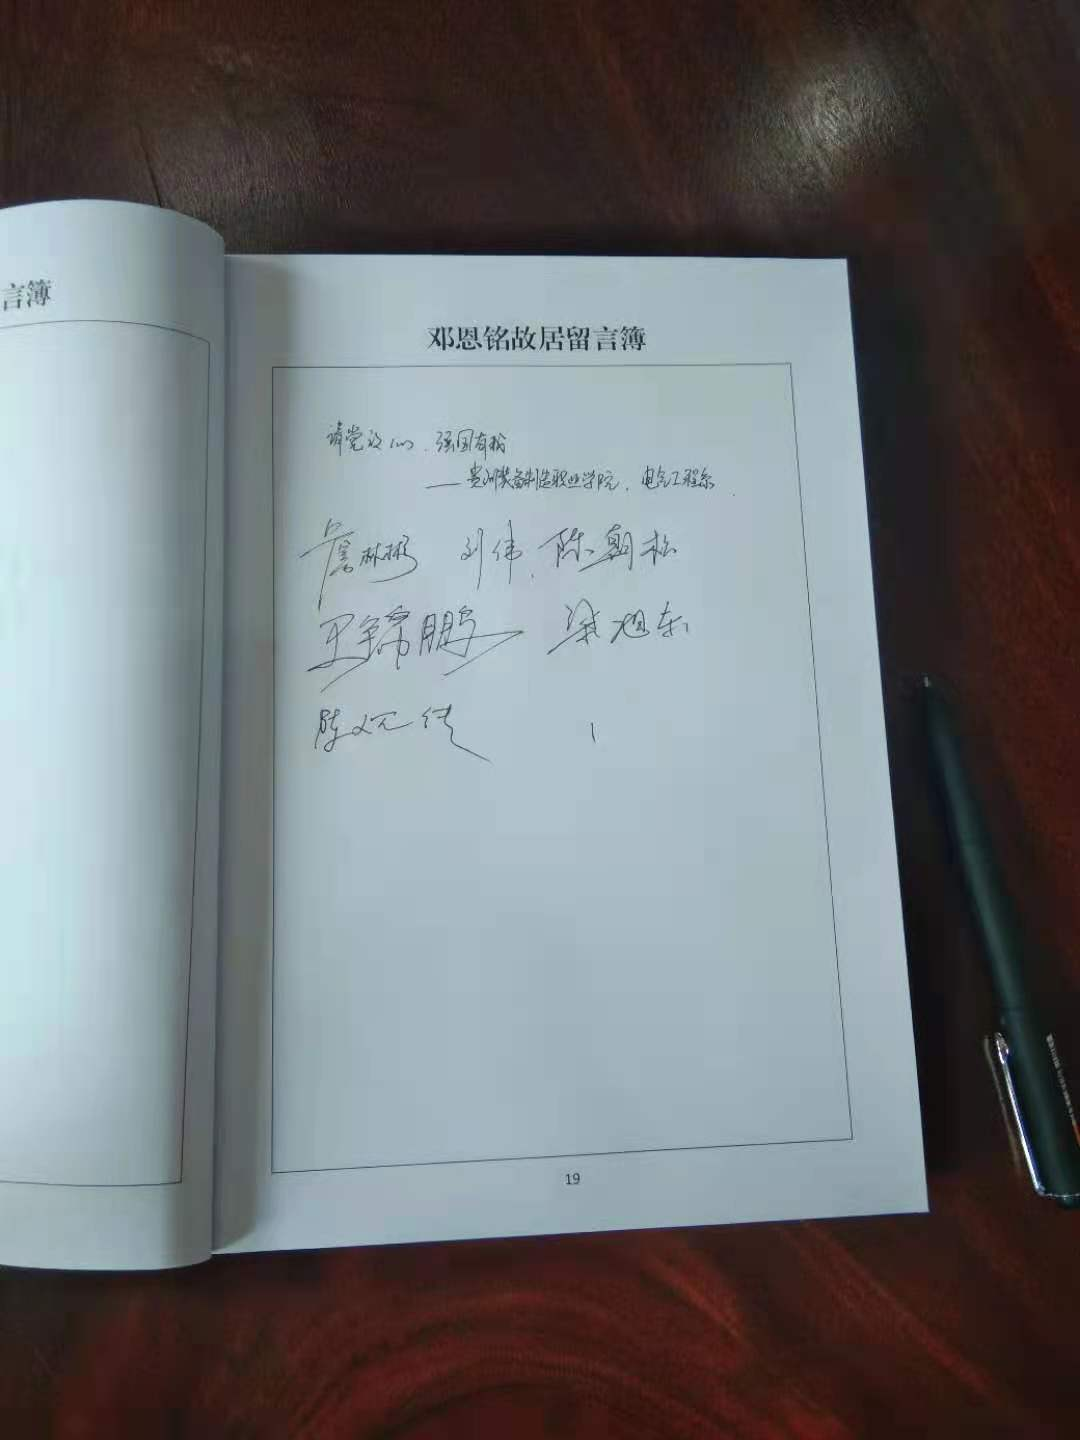 言簿
邓恩铭故居留言簿
请党放心、强国有我
——贵州装备制造职业学院、电气工程系
詹林彬 刘伟、陈朝松
王锦鹏 梁旭东
陈
19